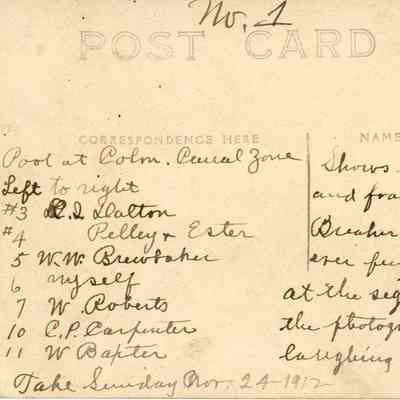 No. 1
POST CARD
CORRESPONDENCE HERE
Pool at Colon. Canal Zone
Left to right
#3 L. I. Dalton
#4 Pelley & Ester
5 W. W. Brewbaker
6 myself
7 W. Roberts
10 C. P. Carpenter
11 W Baxter
Take Sunday Nov. 24-1912
NAME
Shows
and fra
Breaker
ever fu
at the seg
the photogr
laughing